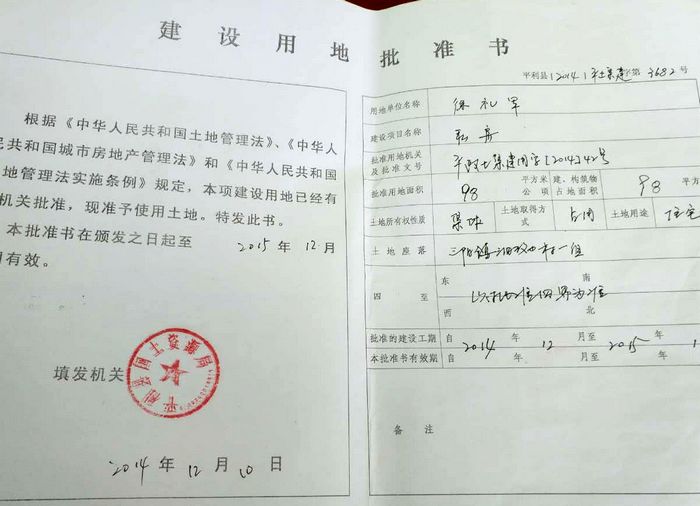 建设用地批准书
根据《中华人民共和国土地管理法》、《中华人
民共和国城市房地产管理法》和《中华人民共和国
地管理法实施条例》规定，本项建设用地已经有
机关批准，现准予使用土地。特发此书。
本批准书在颁发之日起至 2015 年 12 月
有效。
填发机关
平利县国土资源局
2014 年 12 月 10 日
平利县〔2014〕平土集建字第 3682 号
用地单位名称 徐礼军
建设项目名称 私房
批准用地机关及批准文号 平政土集建用字〔2014〕42号
批准用地面积 98 平方米 公顷 建、构筑物占地面积 98 平方
土地所有权性质 集体 土地取得方式 占用 土地用途 住宅
土地座落 三阳镇 村一组
四至 东 南 西 北
以 四界为准
批准的建设工期 自 2014 年 12 月至 2015 年 1
本批准书有效期 自 年 月至 年
备注